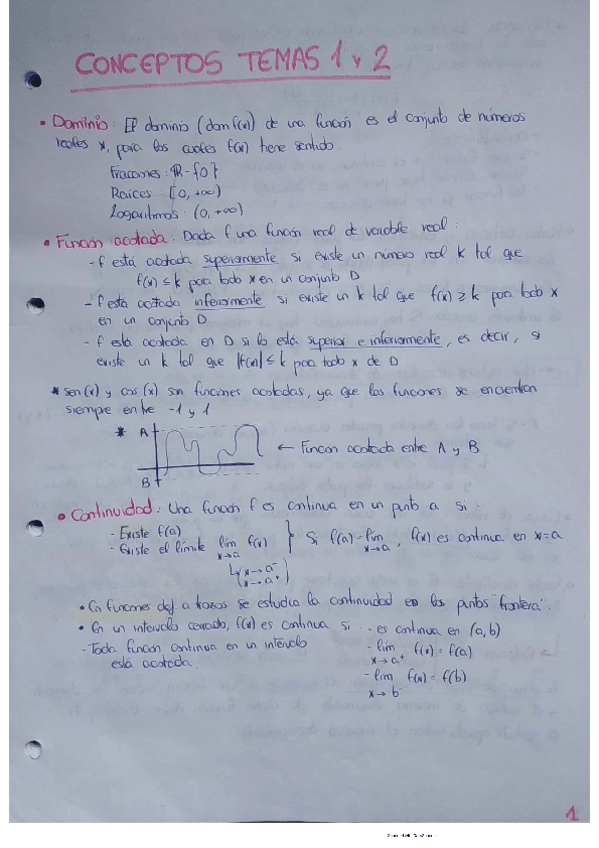 CONCEPTOS TEMAS 1 y 2
• Dominio: El dominio (dom f(x)) de una función es el conjunto de números
reales x, para los cuales f(x) tiene sentido.
Fracciones: ℝ - {0}
Raíces: [0, +∞)
Logaritmos: (0, +∞)
• Función acotada: Dada f una función real de variable real:
- f está acotada superiormente si existe un número real k tal que
f(x) ≤ k para todo x en un conjunto D
- f esta acotada inferiormente si existe un k tal que f(x) ≥ k para todo x
en un conjunto D.
- f está acotada en D si lo está superior e inferiormente, es decir, si
existe un k tal que |f(x)| ≤ k para todo x de D
* sen(x) y cos(x) son funciones acotadas, ya que las funciones se encuentran
siempre entre -1 y 1
* A
← Función acotada entre A y B
B
• Continuidad: Una función f es continua en un punto a si:
- Existe f(a)
- Existe el límite lím x→a f(x) } Si f(a) = lím x→a, f(x) es continua en x=a
↳ (x→a⁻
x→a⁺)
• En funciones def. a trozos se estudia la continuidad en los puntos "frontera".
• En un intervalo cerrado, f(x) es continua si - es continua en (a, b)
- Toda función continua en un intervalo
está acotada.
- lím x→a⁺ f(x) = f(a)
- lím x→b⁻ f(x) = f(b)
1